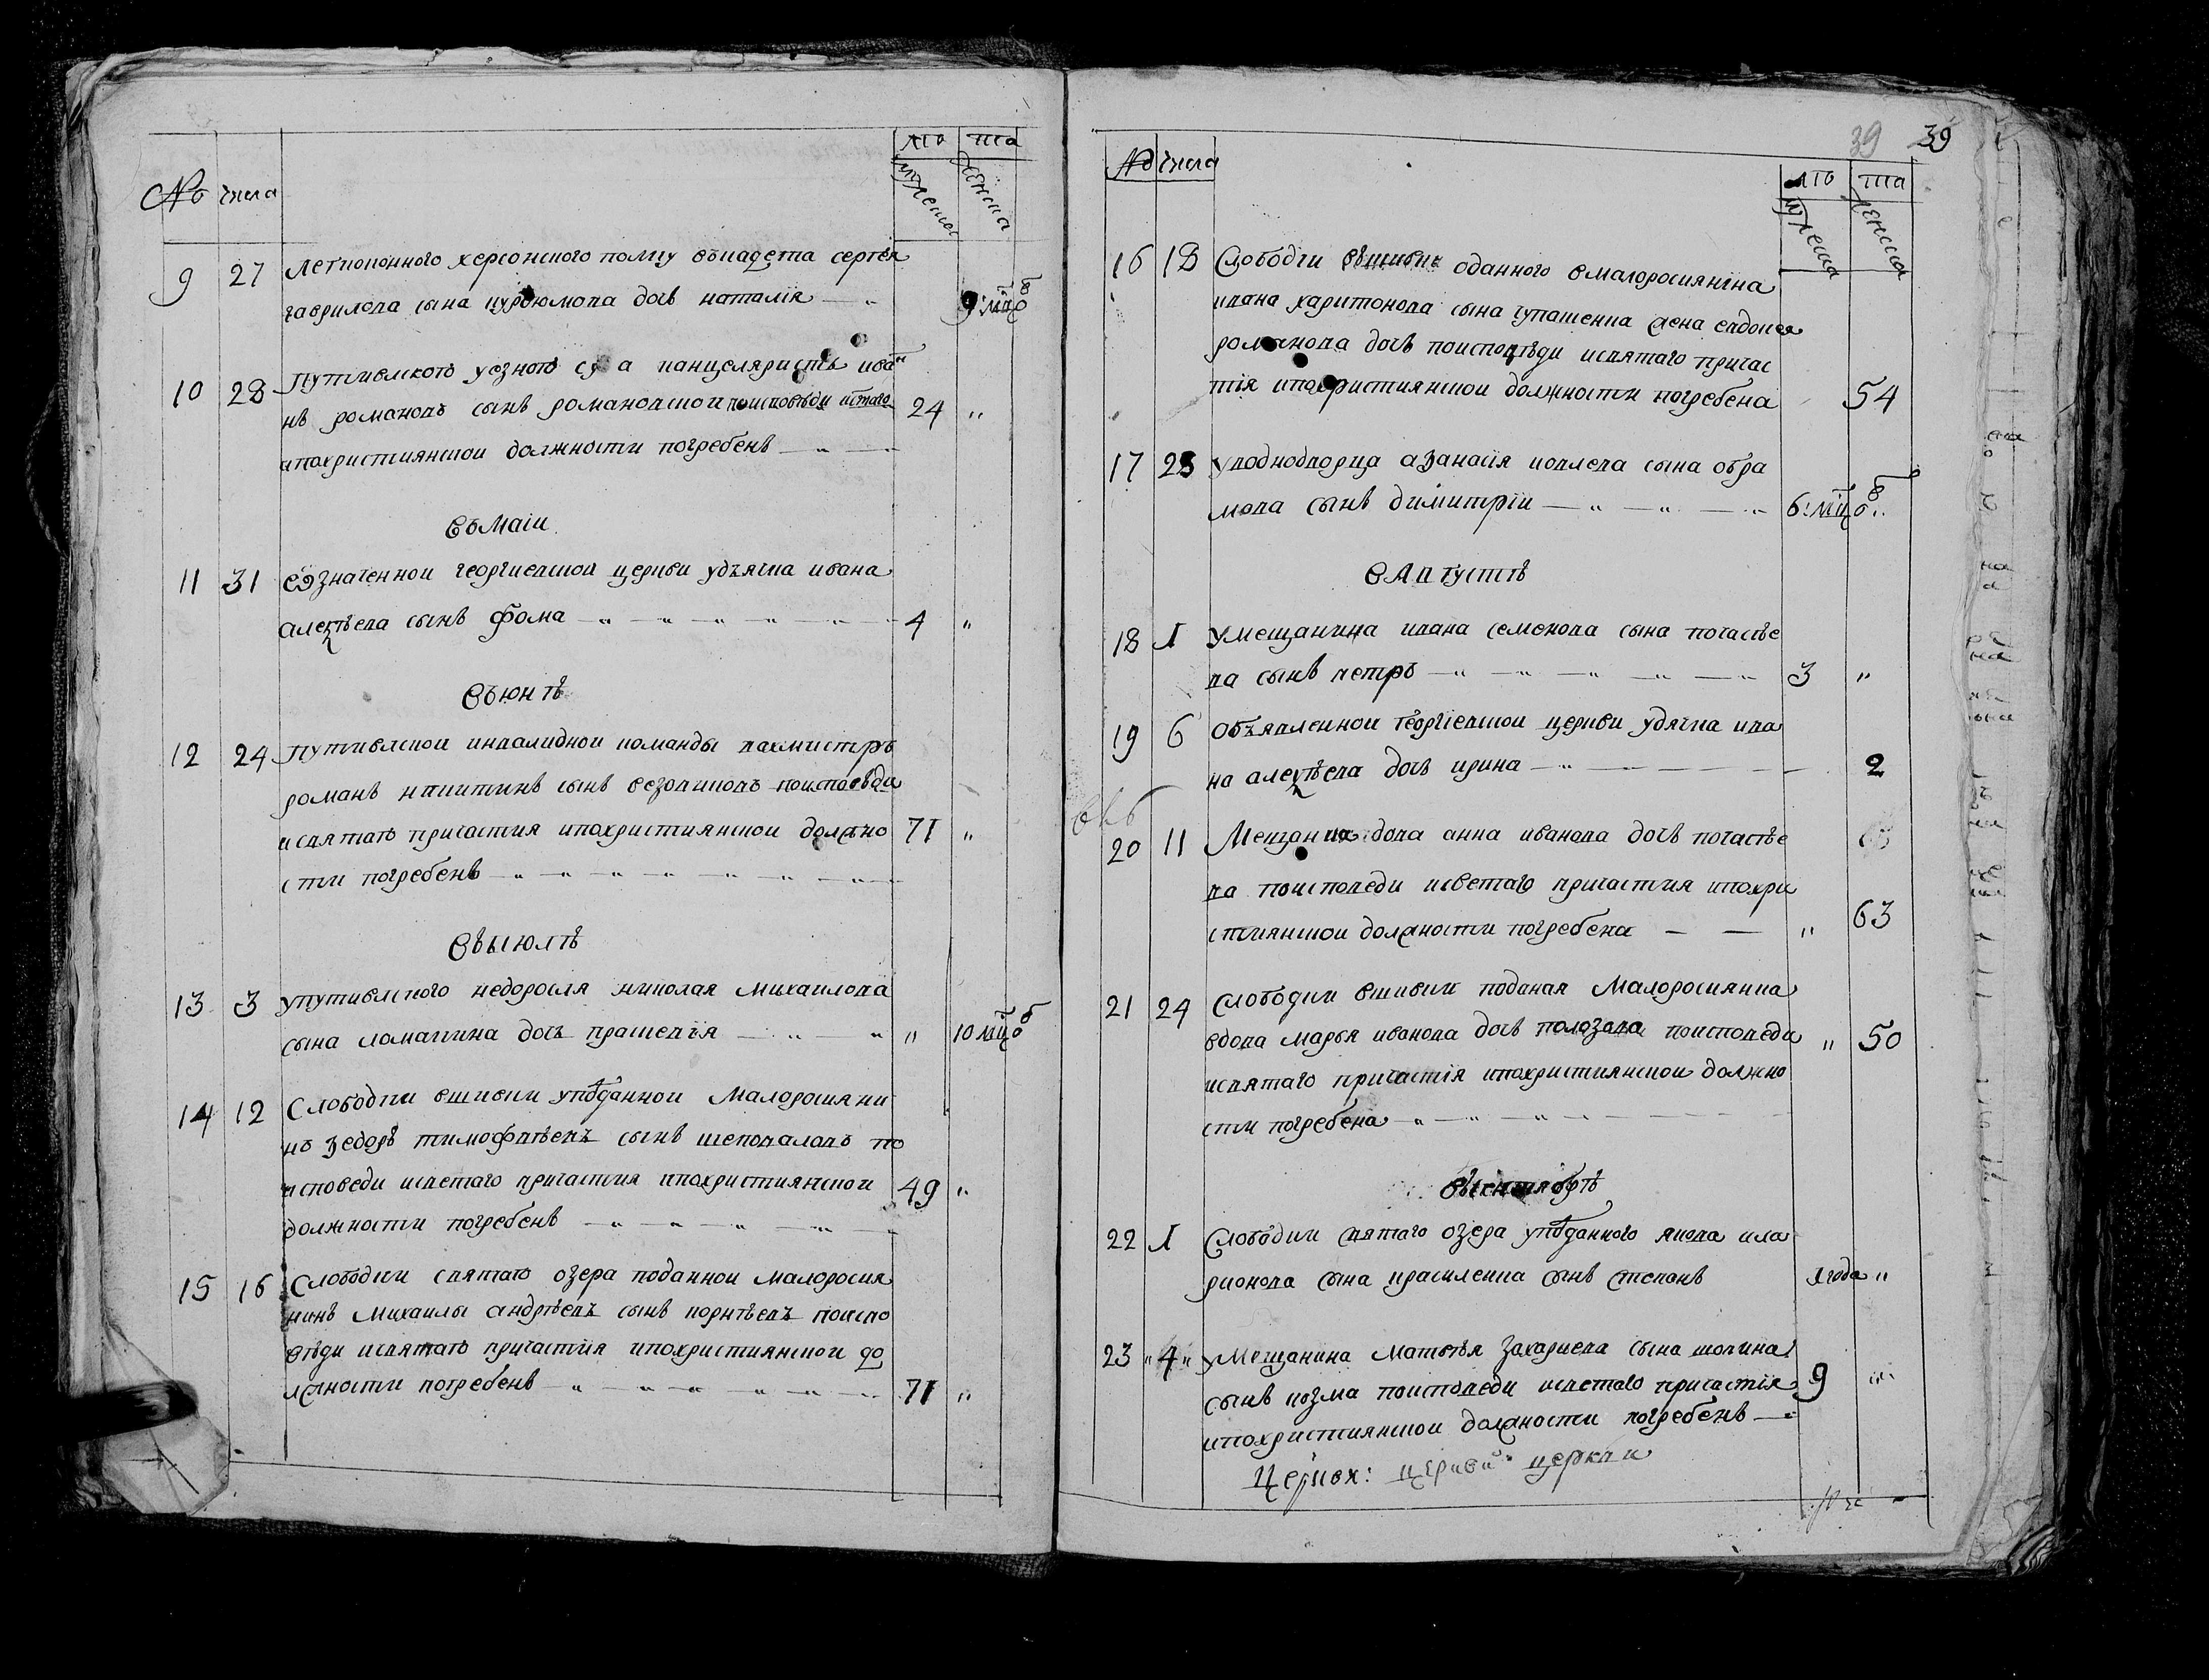 № числа
лѣта
мужеска женска
9 27 Легкоконного херсонского полку въкадета сергѣя
гаврилова сына дочь наталія 9: мцовъ
10 28 Путивлского уезного су а канцеляристъ ива
нъ романовъ сынъ романовской поисповѣди
ипохристиянскои должности погребенъ 24 "
въмаіи
11 31 Означеннои георгиевской церкви удъячка ивана
алеѯѣева сынъ фома 4 "
въюнѣ
12 24 Путивлскои инвалиднои команды вахмистръ
романъ никитинъ сынъ поисповѣди
исвятаго причастия ипохристиянскои должно 71 "
сти погребенъ
въыюлѣ
13 3 упутивлского недоросля николая михаилова
сына ломакина дочь прасковъя " 10 мцовъ
14 12 Слободки вшивки уподданнои малоросияни
нъ ѳедоръ тимофѣевъ сынъ шаповаловъ по
исповеди исветаго причастия ипохристиянскои 49 "
должности погребенъ
15 16 Слободки святаго озера поданнои малоросия
нинъ михаилы андрѣевъ сынъ корнѣевъ поиспо
вѣди исвятаго причастія ипохристиянскои до
лжности погребенъ 71 "
39 39
№ числа
лѣта
мужеска женска
16 18 Слободки вшивки оданного малоросиянина
ивана харитонова сына жена евдокея
романова дочь поисповѣди исвятаго причас
тія ипохристиянскои должности погребена 54
17 23 уводнодворца аѳанасія иовлева сына обра
мова сынъ димитріи 6: мцовъ "
вАвгустѣ
18 1 Умещанина ивана семенова сына
ва сынъ петръ 3 "
19 6 Объявленнои георгіевскои церкви удячка ива
на алеѯѣева дочь ирина 2
20 11 Мещанка вдова анна иванова дочь
ва поисповеди исветаго причастия ипохри
стиянскои должности погребена " 63
21 24 Слободки вшивки поданая малоросиянка
вдова марья иванова дочь полозова поисповеди " 50
исвятаго причастія ипохристиянскои должно
сти погребена
въсентябрѣ
22 1 Слободки святаго озера уподданного якова ила
рионова сына красиленка сынъ степанъ 1 года "
23 "4" умещанина матвѣя захариева сына
сынъ козма поисповеди исветаго причастія 9 "
ипохристиянскои должности погребенъ
церкви церкви